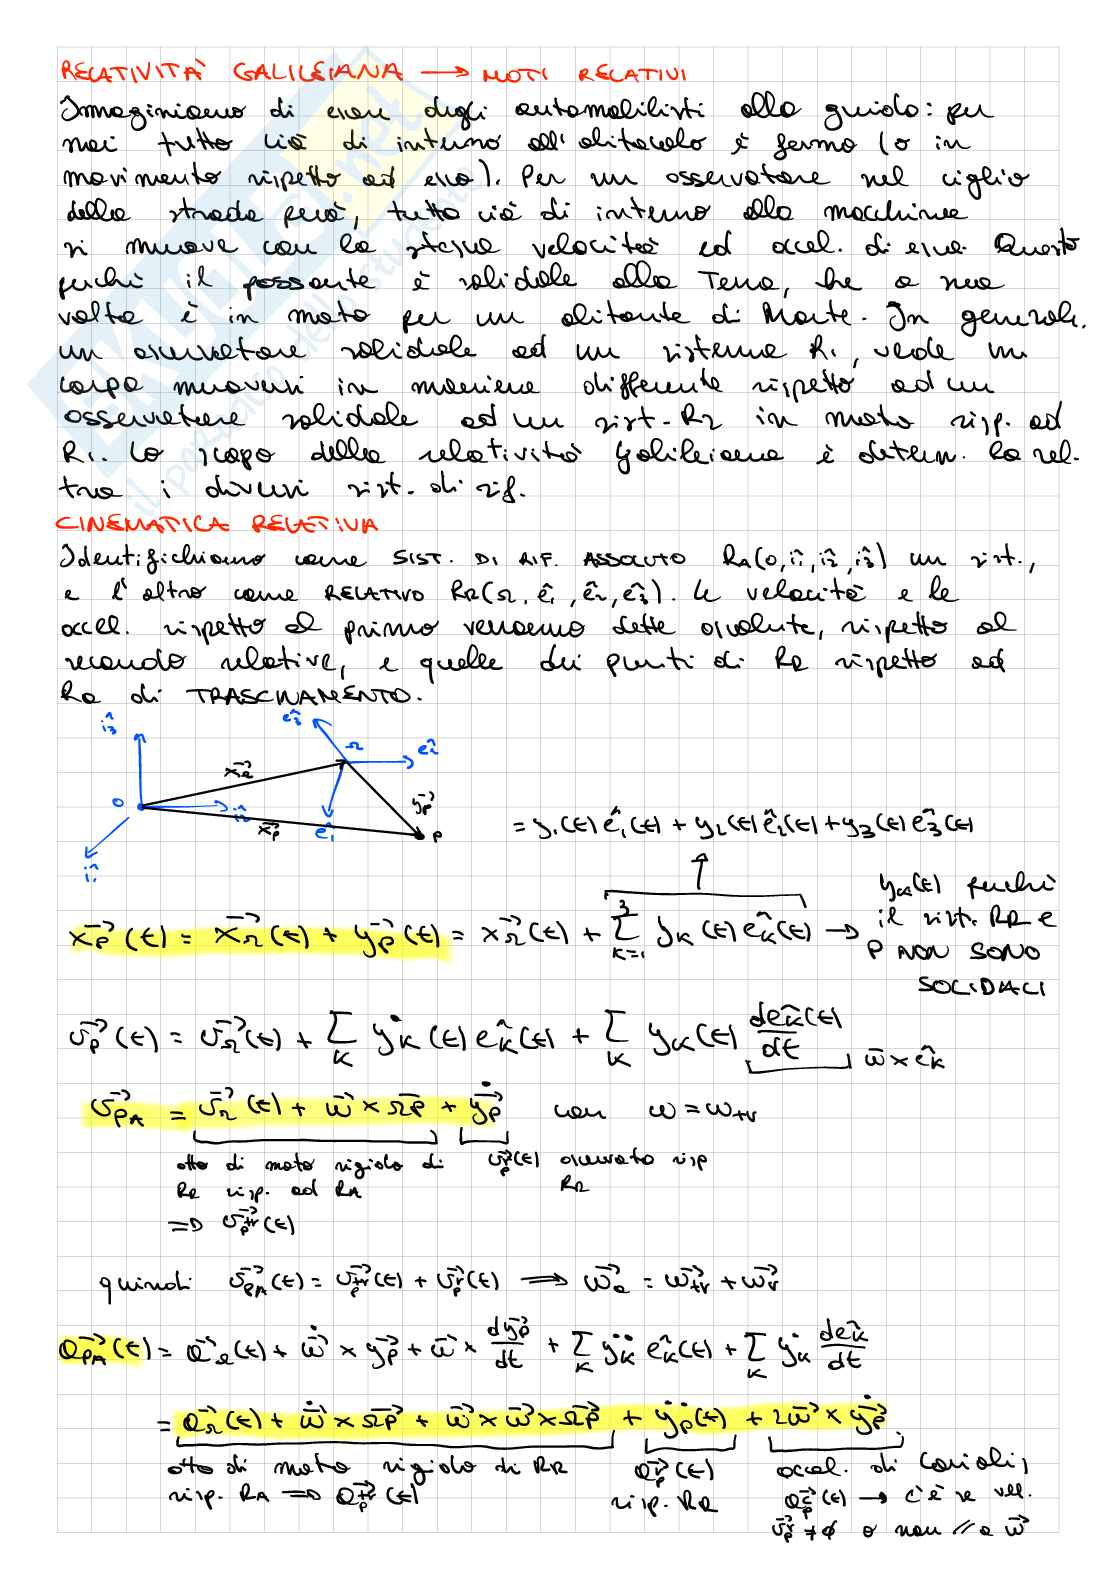 RELATIVITÀ GALILEIANA → MOTI RELATIVI
Immaginiamo di essere degli automobilisti alla guida: per
noi tutto ciò di interno all'abitacolo è fermo (o in
movimento rispetto ad esso). Per un osservatore nel ciglio
della strada però, tutto ciò di interno alla macchina
si muove con la stessa velocità ed accel. di essa. Questo
perché il passante è solidale alla Terra, che a sua
volta è in moto per un abitante di Marte. In generale,
un osservatore solidale ad un sistema R1, vede un
corpo muoversi in maniera differente rispetto ad un
osservatore solidale ad un sist. R2 in moto risp. ad
R1. Lo scopo della relatività galileiana è determ. la rel.
tra i diversi sist. di rif.
CINEMATICA RELATIVA
Identifichiamo come SIST. DI RIF. ASSOLUTO RA(O, î1, î2, î3) un sist.,
e l'altro come RELATIVO RR(Ω, ê1, ê2, ê3). Le velocità e le
accel. rispetto al primo verranno dette assolute, rispetto al
secondo relative, e quelle dei punti di RR rispetto ad
RA di TRASCINAMENTO.
î3 ê3 Ω ê2
x⃗Ω
O î2 x⃗P ê1 y⃗P P
î1
= y1(t) ê1(t) + y2(t) ê2(t) + y3(t) ê3(t)
x⃗P(t) = x⃗Ω(t) + y⃗P(t) = x⃗Ω(t) + Σ_{k=1}^{3} yk(t) êk(t) →
yk(t) perché
il sist. RR e
P NON SONO
SOLIDALI
v⃗P(t) = v⃗Ω(t) + Σ_k ẏk(t) êk(t) + Σ_k yk(t) dêk(t)/dt
ω⃗ × êk
v⃗PA = v⃗Ω(t) + ω⃗ × ΩP⃗ + ẏ⃗P con ω = ωtr
atto di moto rigido di
RR risp. ad RA
⇒ v⃗P^tr(t)
v⃗P^r(t) osservato risp
RR
quindi v⃗PA(t) = v⃗P^tr(t) + v⃗P^r(t) ⟹ ω⃗a = ω⃗tr + ω⃗r
a⃗PA(t) = a⃗Ω(t) + ω̇⃗ × y⃗P + ω⃗ × dy⃗P/dt + Σ_k ÿk êk(t) + Σ_k ẏk dêk/dt
= a⃗Ω(t) + ω̇⃗ × ΩP⃗ + ω⃗ × ω⃗ × ΩP⃗ + ÿ⃗P(t) + 2ω⃗ × ẏ⃗P
atto di moto rigido di RR
risp. RA ⇒ a⃗P^tr(t)
a⃗P^r(t)
risp. RR
accel. di Coriolis
a⃗P^c(t) → c'è se vel.
v⃗P^r ≠ ∅ o non // a ω⃗